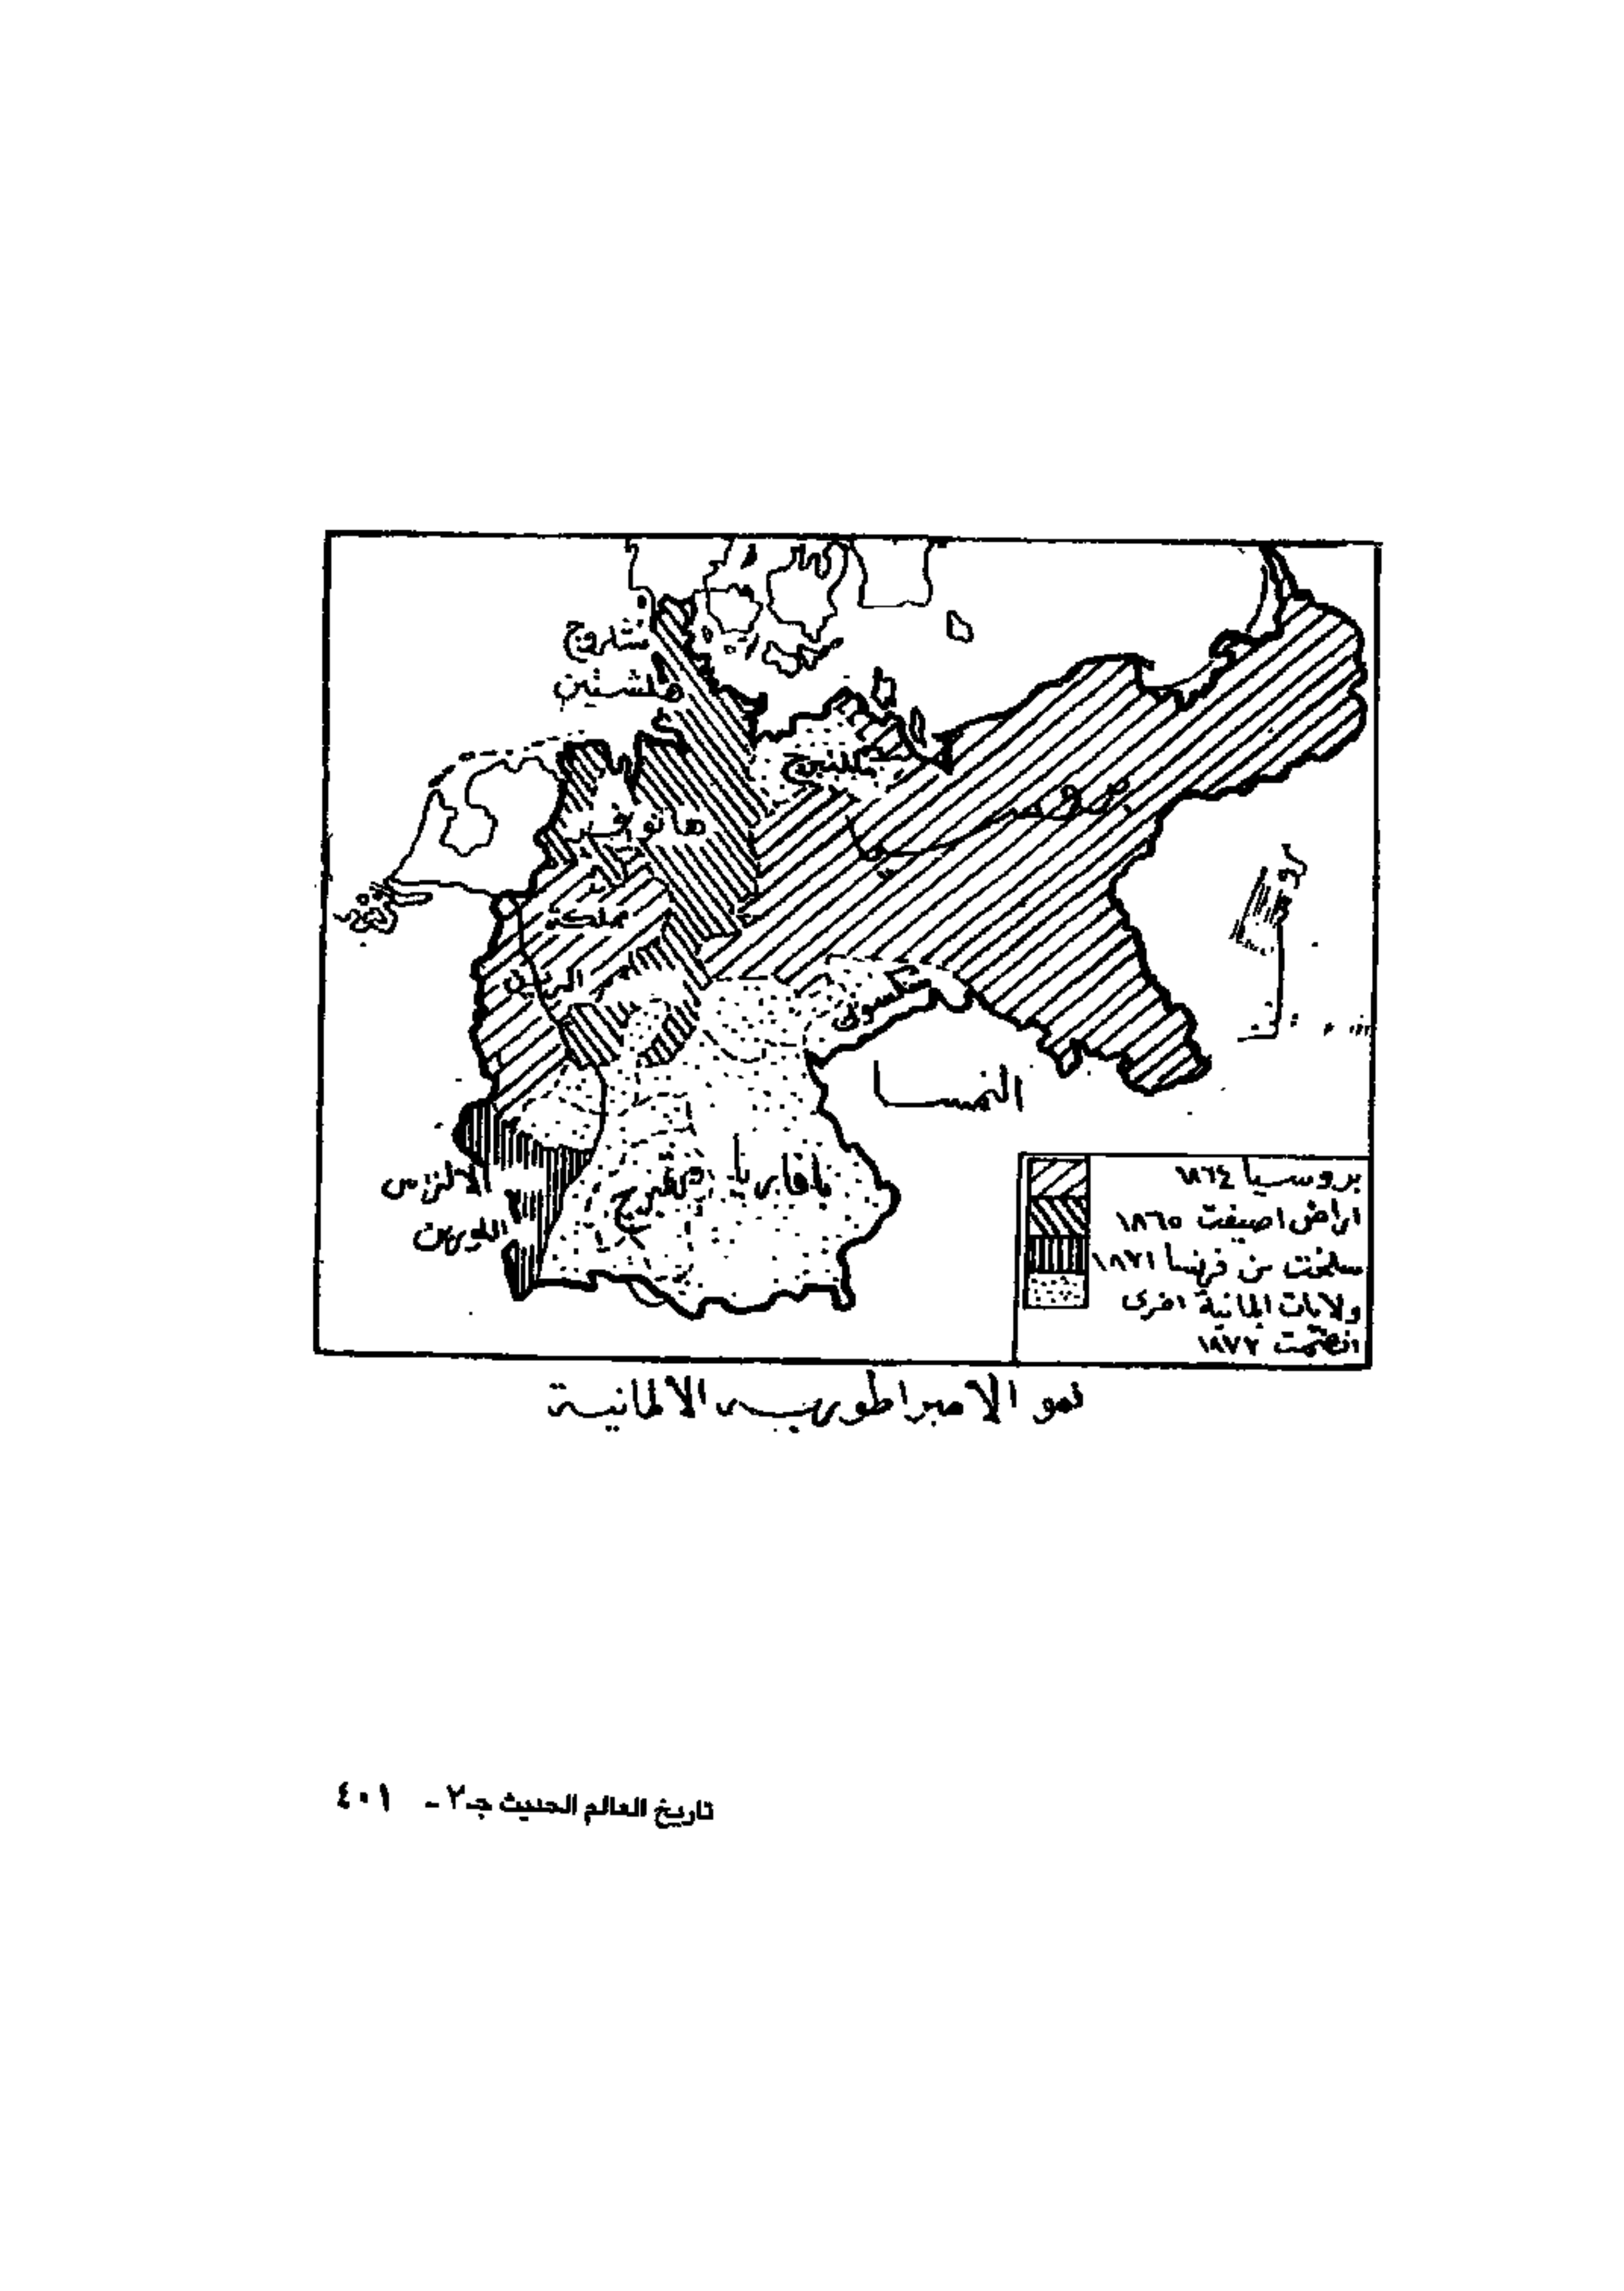 شلزوج
هلشتين
هانوفر
مملكة
الراين
بروسيا
النمسا
الالزس
اللورين
بافاريا
بروسيا ١٨٦٤
اراض اضيفت ١٨٦٥
سلخت من فرنسا ١٨٧١
ولايات المانية اخرى
انضمت ١٨٧٢
نمو الامبراطورية الالمانية
تاريخ العالم الحديث جـ٢ - ٤٠١